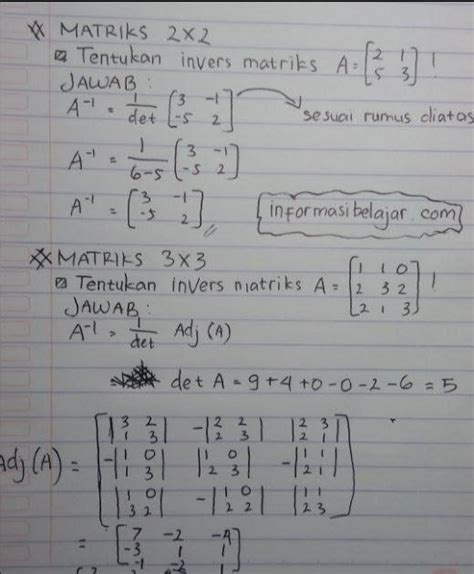 ** MATRIKS 2x2
Tentukan invers matriks A = [2 1; 5 3] !
JAWAB :
A⁻¹ = 1/det [3 -1; -5 2] → sesuai rumus diatas
A⁻¹ = 1/(6-5) [3 -1; -5 2]
A⁻¹ = [3 -1; -5 2] //
informasibelajar.com
** MATRIKS 3x3
Tentukan invers matriks A = [1 1 0; 2 3 2; 2 1 3] !
JAWAB :
A⁻¹ = 1/det Adj (A)
det A = 9+4+0-0-2-6 = 5
Adj (A) = [|3 2; 1 3| -|2 2; 2 3| |2 3; 2 1|; -|1 0; 1 3| |1 0; 2 3| -|1 1; 2 1|; |1 0; 3 2| -|1 0; 2 2| |1 1; 2 3|]
= [7 -2 -4; -3 1 1; -1 -2 1]